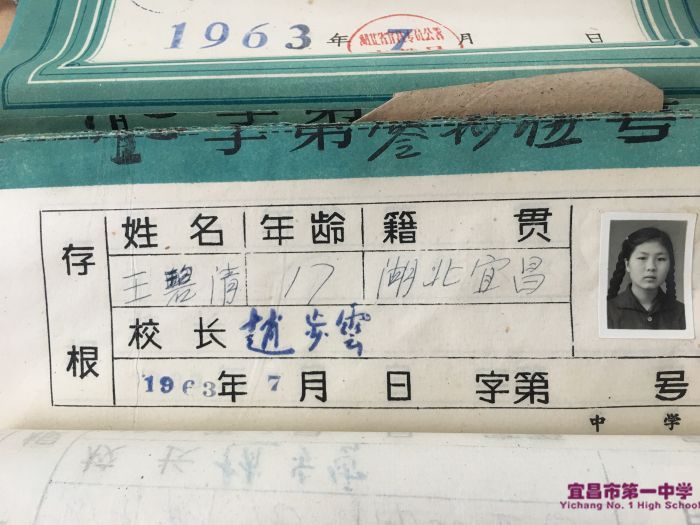 1963年7月 日
字第叁拾伍号
存根
姓名 年龄 籍贯
王碧清 17 湖北宜昌
校长 趙步雲
1963年7月 日 字第 号
中学
宜昌市第一中学
Yichang No. 1 High School